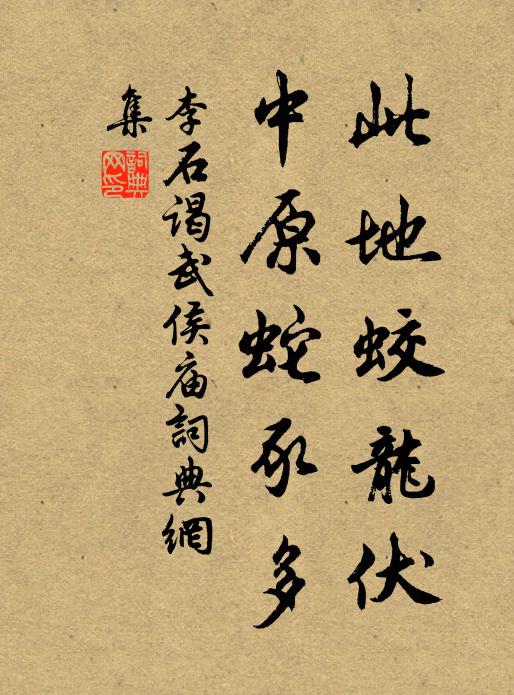 此地蛟龍伏
中原蛇豕多
李石謁武侯庙詞典網
集
詞典
网印